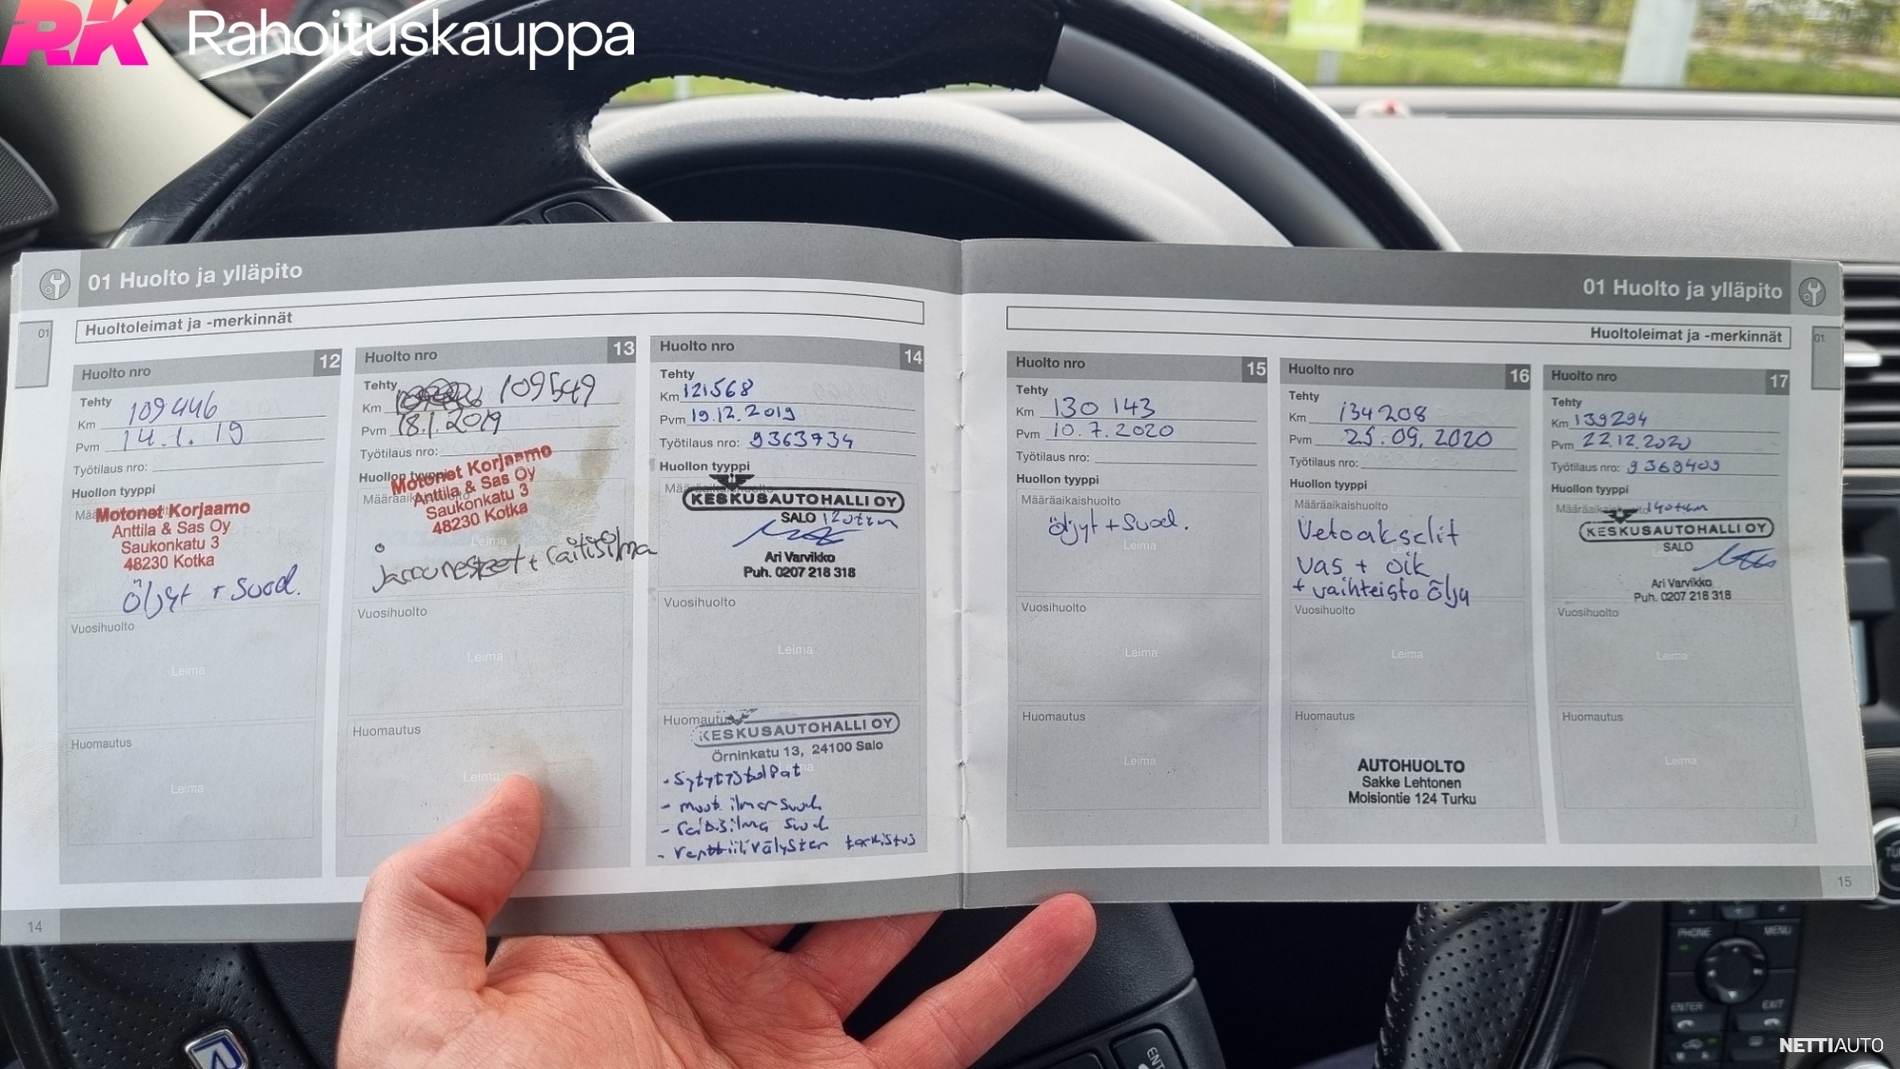 RK Rahoituskauppa
01 Huolto ja ylläpito
01
Huoltoleimat ja -merkinnät
Huolto nro 12
Tehty
Km 109446
Pvm 14.1.19
Työtilaus nro:
Huollon tyyppi
Motonet Korjaamo
Anttila & Sas Oy
Saukonkatu 3
48230 Kotka
öljyt + suod.
Vuosihuolto
Leima
Huomautus
Leima
Huolto nro 13
Tehty
Km 109549
Pvm 18.1.2019
Työtilaus nro:
Huollon tyyppi
Motonet Korjaamo
Anttila & Sas Oy
Saukonkatu 3
48230 Kotka
Leima
jarrunesteet + raitisilma
Vuosihuolto
Leima
Huomautus
Leima
Huolto nro 14
Tehty
Km 121568
Pvm 19.12.2019
Työtilaus nro: 9363734
Huollon tyyppi
KESKUSAUTOHALLI OY
SALO 120tkm
Ari Varvikko
Puh. 0207 218 318
Vuosihuolto
Leima
Huomautus
KESKUSAUTOHALLI OY
Örninkatu 13, 24100 Salo
- Sytytystulpat
- moot. ilmansuod
- raitisilma suod
- venttiilivälysten tarkistus
14
01 Huolto ja ylläpito
Huoltoleimat ja -merkinnät
01
Huolto nro 15
Tehty
Km 130 143
Pvm 10.7.2020
Työtilaus nro:
Huollon tyyppi
Määräaikaishuolto
öljyt + suod.
Leima
Vuosihuolto
Leima
Huomautus
Leima
Huolto nro 16
Tehty
Km 134208
Pvm 25.09.2020
Työtilaus nro:
Huollon tyyppi
Määräaikaishuolto
Vetoakselit
vas + oik
+ vaihteisto öljy
Vuosihuolto
Leima
Huomautus
AUTOHUOLTO
Sakke Lehtonen
Moisiontie 124 Turku
Huolto nro 17
Tehty
Km 139294
Pvm 22.12.2020
Työtilaus nro: 9369409
Huollon tyyppi
140tkm
KESKUSAUTOHALLI OY
SALO
Ari Varvikko
Puh. 0207 218 318
Vuosihuolto
Leima
Huomautus
Leima
15
PHONE
MENU
ENTER
EXIT
NETTIAUTO